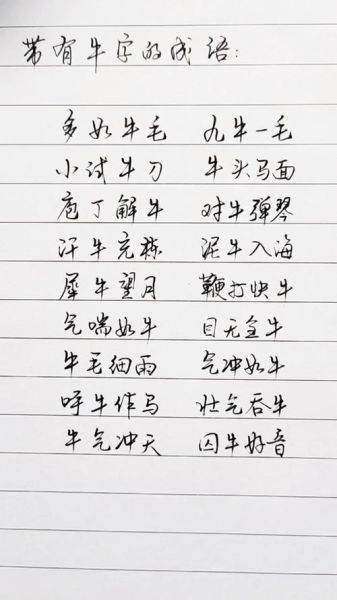 带有牛字的成语:
多如牛毛 九牛一毛
小试牛刀 牛头马面
庖丁解牛 对牛弹琴
汗牛充栋 泥牛入海
犀牛望月 鞭打快牛
气喘如牛 目无全牛
牛毛细雨 气冲如牛
呼牛作马 壮气吞牛
牛气冲天 囚牛好音